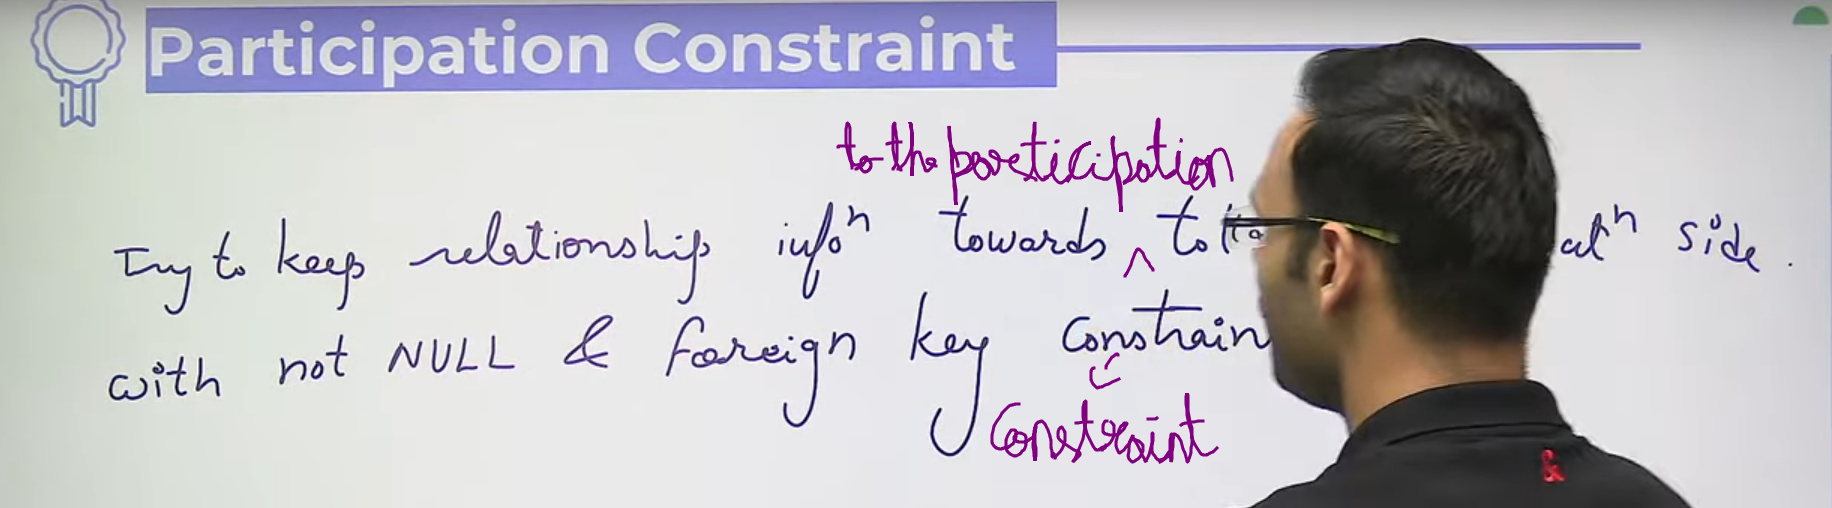 Participation Constraint
to the participation
Try to keep relationship infoⁿ towards ^ to side.
with not NULL & foreign key constrain
Constraint